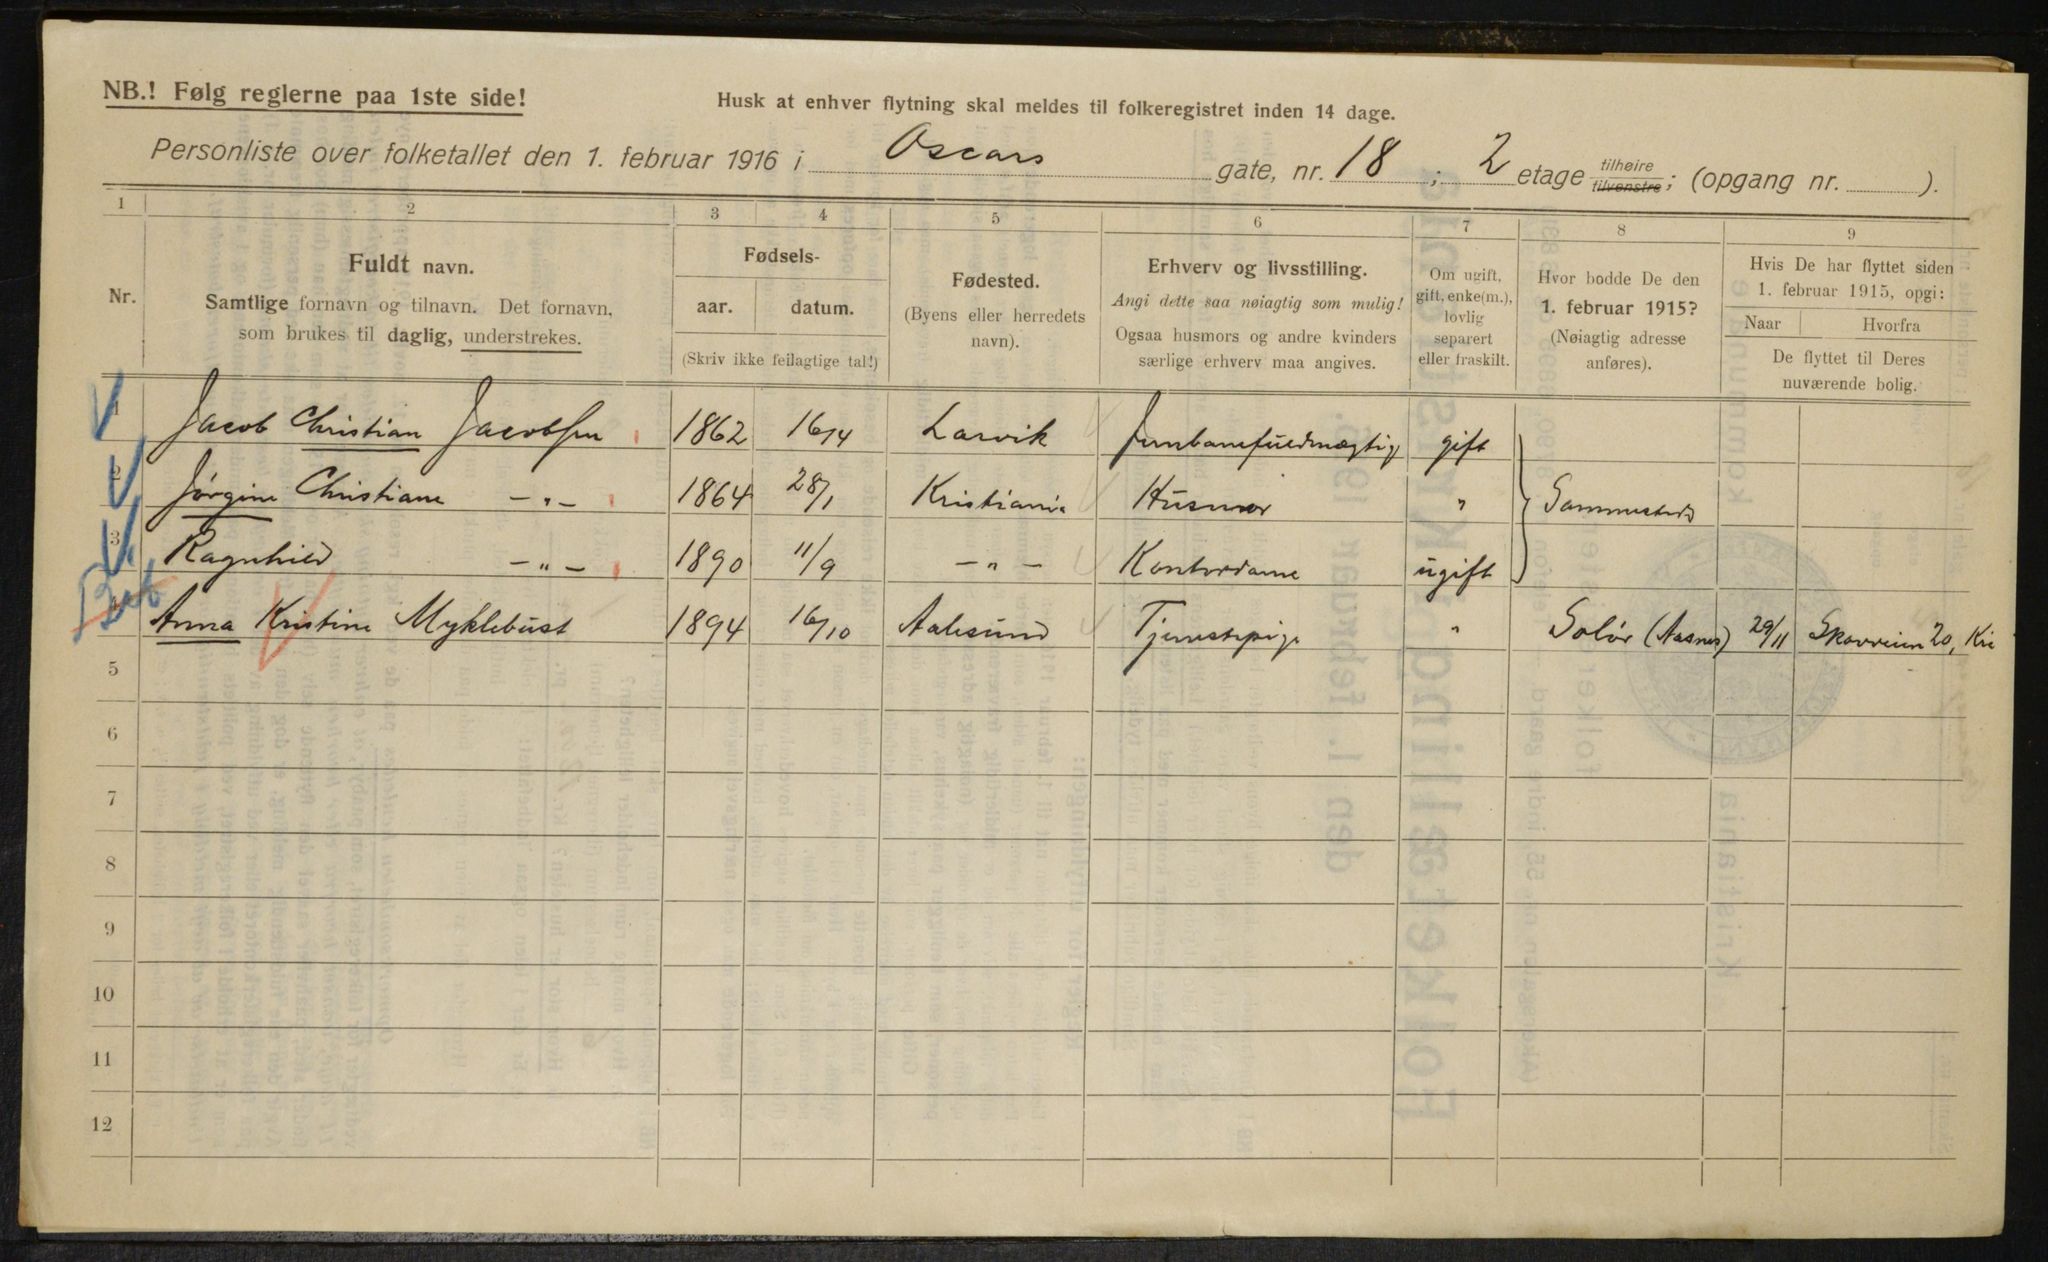 NB.! Følg reglerne paa 1ste side!
Husk at enhver flytning skal meldes til folkeregistret inden 14 dage.
Personliste over folketallet den 1. februar 1916 i Oscars gate, nr. 18 ; 2 etage tilhøire tilvenstre; (opgang nr. ).
1 2 3 4 5 6 7 8 9
Nr.
Fuldt navn.
Samtlige fornavn og tilnavn. Det fornavn,
som brukes til daglig, understrekes.
Fødsels-
aar. datum.
(Skriv ikke feilagtige tal!)
Fødested.
(Byens eller herredets
navn).
Erhverv og livsstilling.
Angi dette saa nøiagtig som mulig!
Ogsaa husmors og andre kvinders
særlige erhverv maa angives.
Om ugift,
gift, enke(m.),
lovlig
separert
eller fraskilt.
Hvor bodde De den
1. februar 1915?
(Nøiagtig adresse
anføres).
Hvis De har flyttet siden
1. februar 1915, opgi:
Naar Hvorfra
De flyttet til Deres
nuværende bolig.
1 Jacob Christian Jacobsen 1862 16/4 Larvik Jernbanefuldmægtig gift
2 Jørgine Christiane —„— 1864 28/1 Kristiania Husmor „ Sammesteds
3 Ragnhild —„— 1890 11/9 —„— Kontordame ugift
4 Anna Kristine Myklebust 1894 16/10 Aalesund Tjenestepige „ Solør (Aasnes) 29/11 Skovveien 20, Kra
5
6
7
8
9
10
11
12